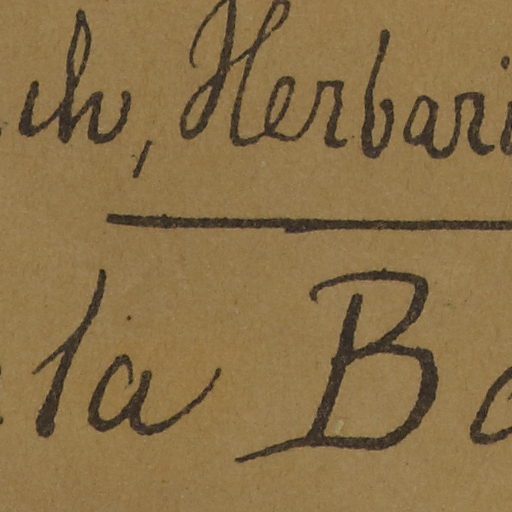 ch, Herbari
la B